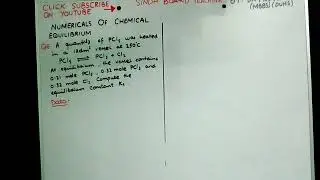 CLICK SUBSCRIBE
ON YOUTUBE
SINDH BOARD TEACHER
(MBBS) (DUHS)
NUMERICALS OF CHEMICAL
EQUILIBRIUM
A quantity of PCl5 was heated
in a vessel at 250°C
PCl5 ⇌ PCl3 + Cl2
At equilibrium the vessel contains
0.32 mole PCl3 and
0.32 mole Cl2 Compute the
equilibrium constant Kc
Data: